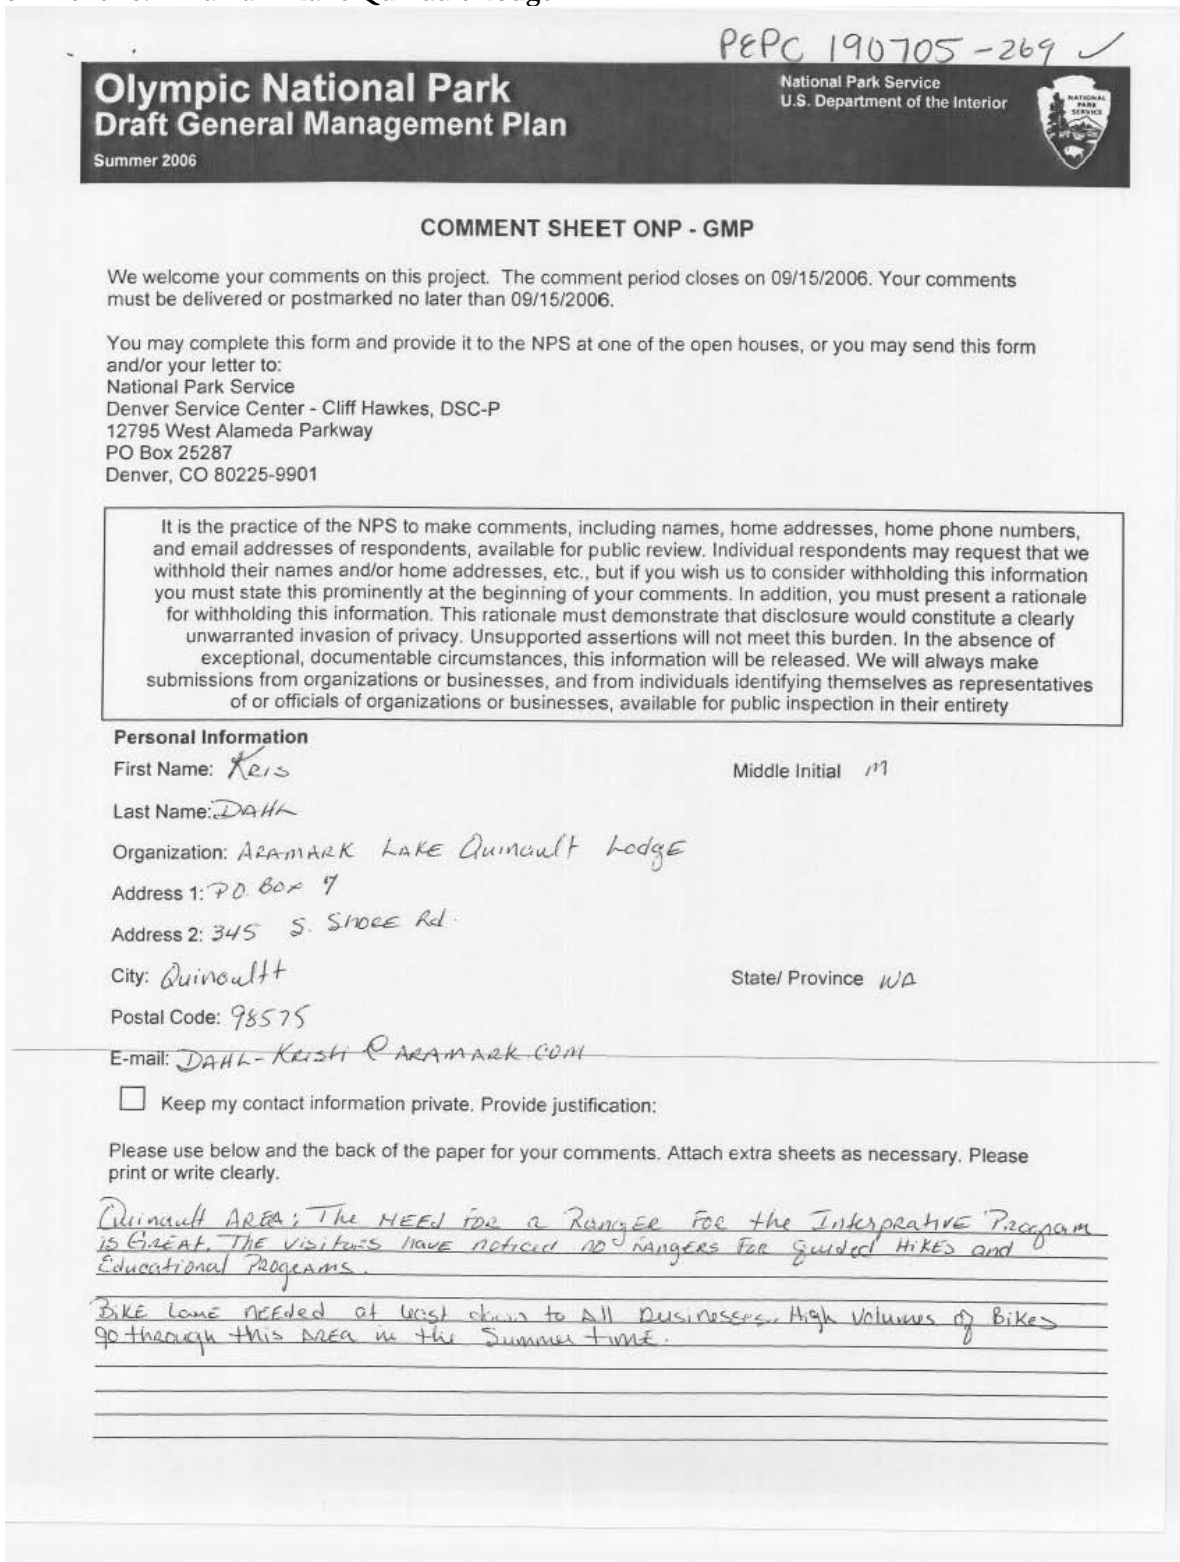 PEPC 190705-269 ✓
Olympic National Park
Draft General Management Plan
Summer 2006
National Park Service
U.S. Department of the Interior
NATIONAL
PARK
SERVICE
COMMENT SHEET ONP - GMP
We welcome your comments on this project. The comment period closes on 09/15/2006. Your comments
must be delivered or postmarked no later than 09/15/2006.
You may complete this form and provide it to the NPS at one of the open houses, or you may send this form
and/or your letter to:
National Park Service
Denver Service Center - Cliff Hawkes, DSC-P
12795 West Alameda Parkway
PO Box 25287
Denver, CO 80225-9901
It is the practice of the NPS to make comments, including names, home addresses, home phone numbers,
and email addresses of respondents, available for public review. Individual respondents may request that we
withhold their names and/or home addresses, etc., but if you wish us to consider withholding this information
you must state this prominently at the beginning of your comments. In addition, you must present a rationale
for withholding this information. This rationale must demonstrate that disclosure would constitute a clearly
unwarranted invasion of privacy. Unsupported assertions will not meet this burden. In the absence of
exceptional, documentable circumstances, this information will be released. We will always make
submissions from organizations or businesses, and from individuals identifying themselves as representatives
of or officials of organizations or businesses, available for public inspection in their entirety
Personal Information
First Name: Kris
Middle Initial M
Last Name: DAHL
Organization: ARAMARK LAKE Quinault Lodge
Address 1: P.O. Box 7
Address 2: 345 S. SHORE Rd.
City: Quinaultt
State/ Province WA
Postal Code: 98575
E-mail: DAHL-Kristi@ARAMARK.COM
Keep my contact information private. Provide justification:
Please use below and the back of the paper for your comments. Attach extra sheets as necessary. Please
print or write clearly.
Quinault AREA: The NEEd FOR a RangER FOR the Interprative Program
is GREAT. The visitors have noticed no RANGERS FOR guided HIKES and
Educational PROGRAMS.
BIKE Lane NEEded at least down to All Businesses. High Volumes of Bikes
go through this AREA in the Summer time.